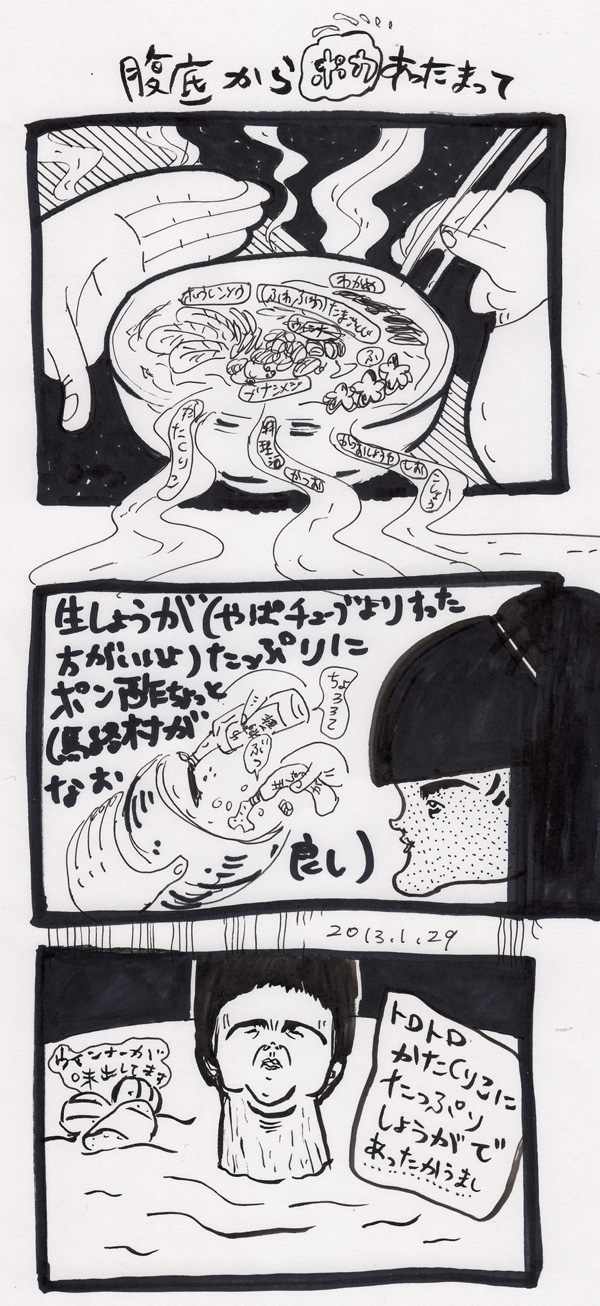 腹底からポカあったまって
ホウレンソウ
(ふわふわ)たまごとじ
わかめ
ウインナー
ふ
ブナシメジ
かたくりこ
料理酒
かつお
しお
こしょう
生しょうが(やぱチューブよりすった
方がいいよ)たっぷりに
ポン酢ちょっと
(馬路村が
なお
良し)
ちょろろて
ぶつ
2013.1.29
ウインナーが
味出してます
トロトロ
かたくりこに
たっぷり
しょうがで
あったかうまし